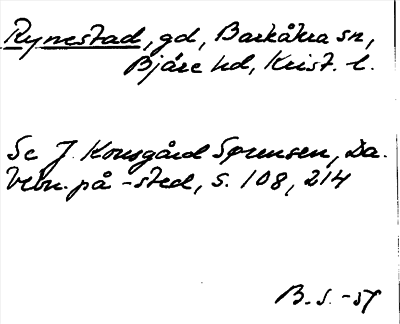 Rynestad, gd, Barkåkra sn,
Bjäre hd, Krist. l.
Se J. Kousgård Sørensen, Da.
bebn. på -sted, s. 108, 214
B. S. -57